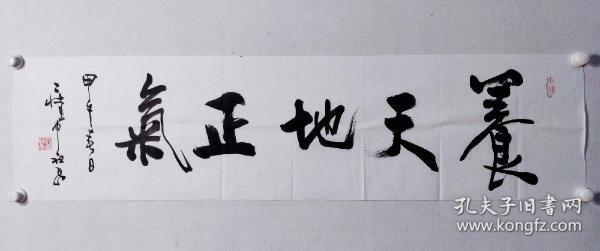 養天地正氣
甲午春日
孔夫子旧书网
www.kongfz.com